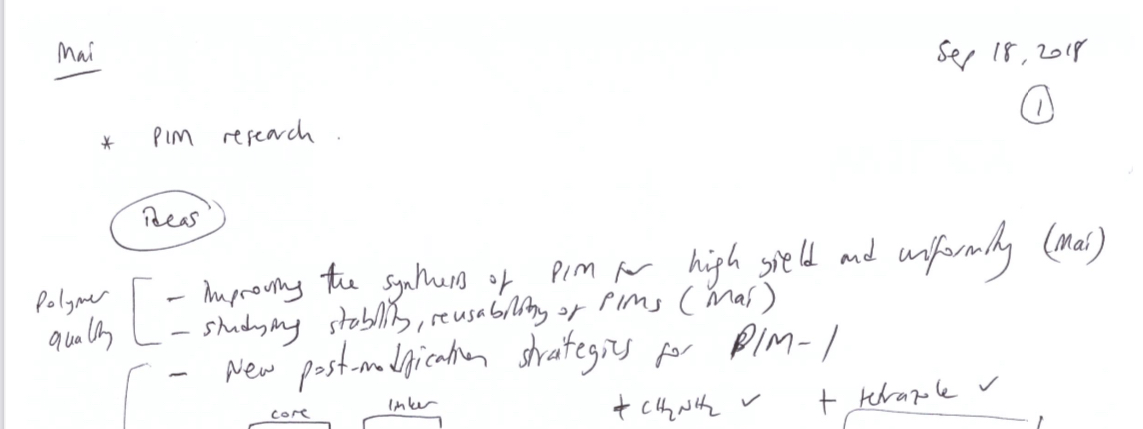 Mai
Sep 18, 2018
1
* PIM research.
ideas
Polymer quality
- Improving the synthesis of PIM for high yield and uniformity (Mai)
- studying stability, reusability of PIMs (Mai)
- New post-modification strategies for PIM-1
core linker + CH2NH2 ✓ + tetrazole ✓